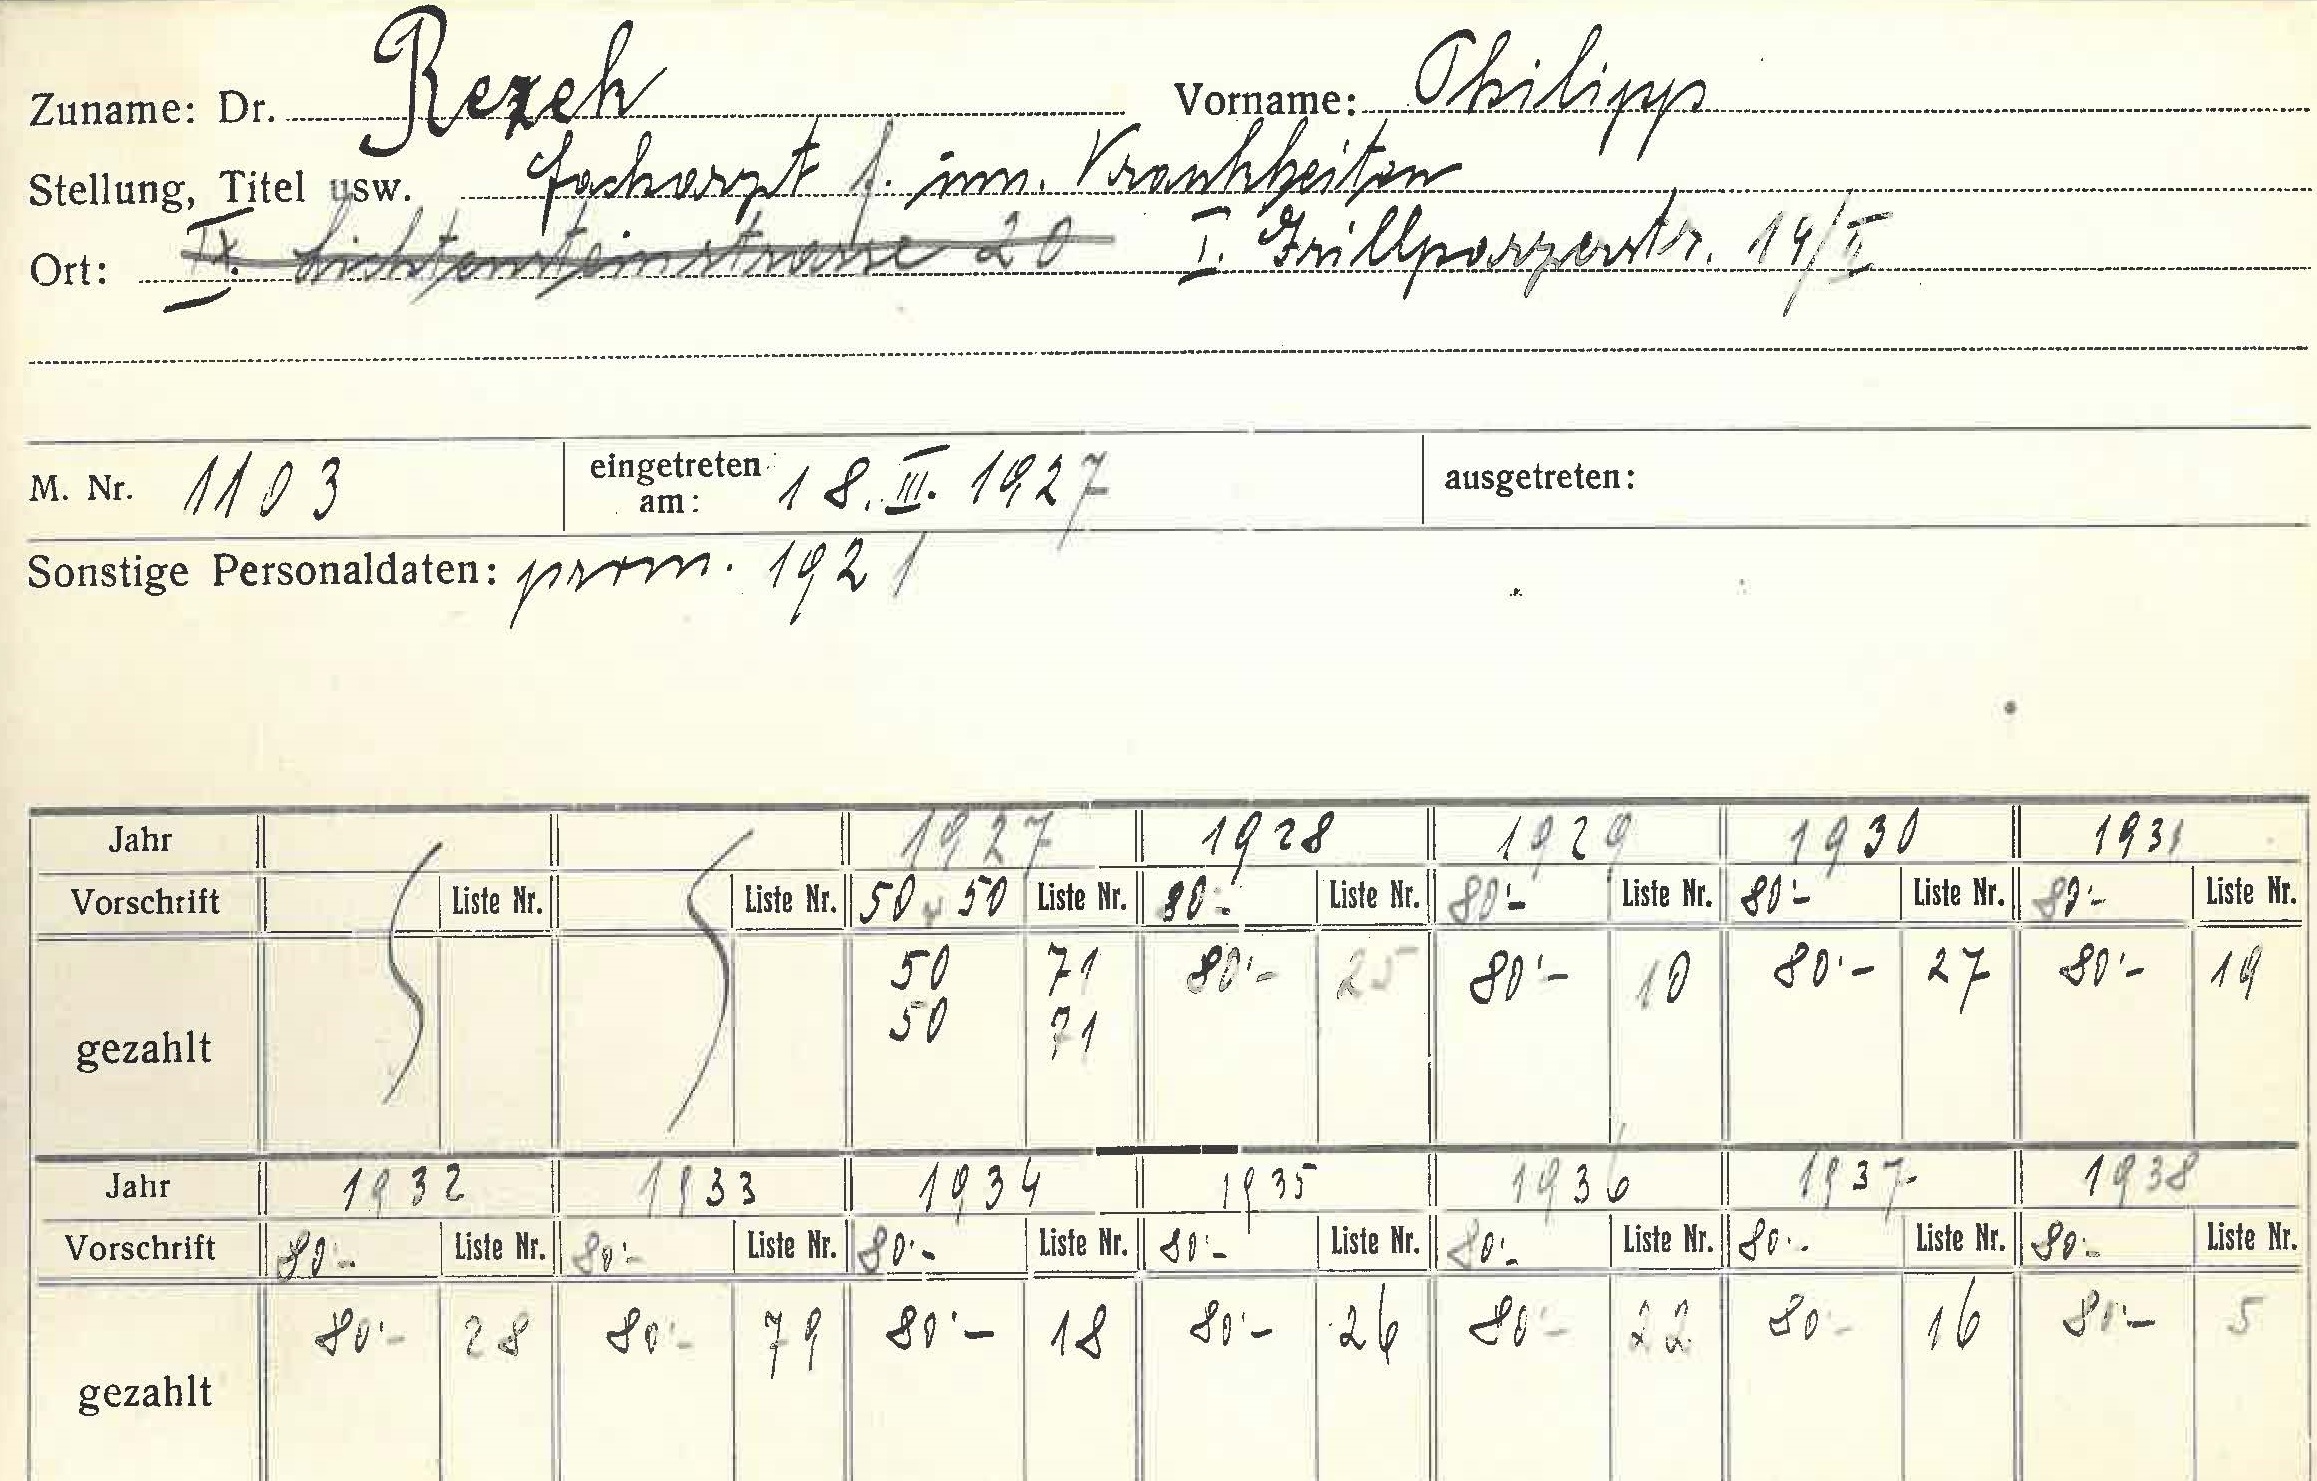 Zuname: Dr. Rezek Vorname: Philipp
Stellung, Titel usw. Facharzt f. inn. Krankheiten
Ort: IX. Lichtensteinstrasse 20 I. Grillparzerstr. 14/II
M. Nr. 1103 eingetreten am: 18. III. 1927 ausgetreten:
Sonstige Personaldaten: prom. 1921
Jahr 1927 1928 1929 1930 1931
Vorschrift Liste Nr. Liste Nr. 50 50 Liste Nr. 80'- Liste Nr. 80'- Liste Nr. 80'- Liste Nr. 80'- Liste Nr.
gezahlt 50 71 80'- 25 80'- 10 80'- 27 80'- 19
50 71
Jahr 1932 1933 1934 1935 1936 1937 1938
Vorschrift 80'- Liste Nr. 80'- Liste Nr. 80'- Liste Nr. 80'- Liste Nr. 80'- Liste Nr. 80'- Liste Nr. 80'- Liste Nr.
gezahlt 80'- 28 80'- 79 80'- 18 80'- 26 80'- 22 80'- 16 80'- 5